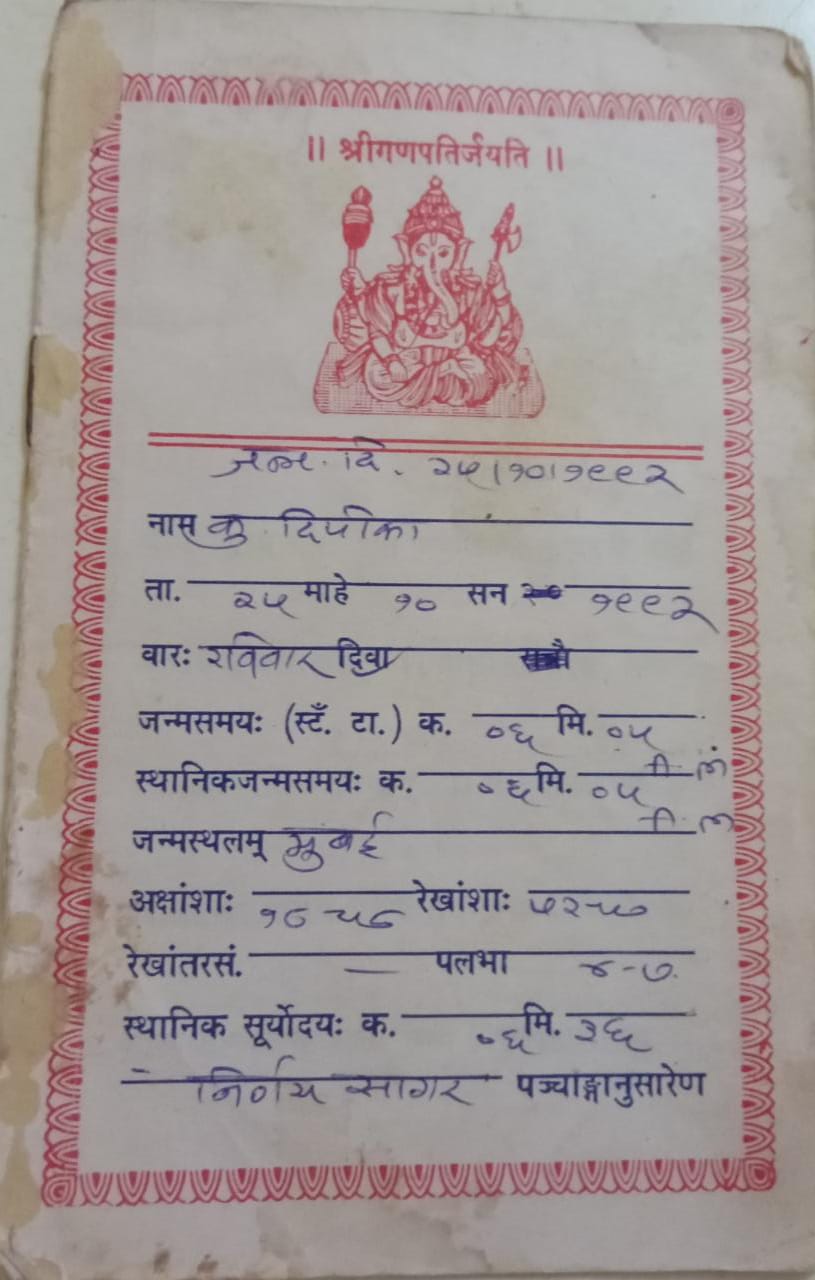 ॥ श्रीगणपतिर्जयति ॥
जन्म. दि. २५।१०।१९९२
नाम कु. दिपीका
ता. २५ माहे १० सन १९९२
वारः रविवार दिवा
जन्मसमयः (स्टँ. टा.) क. ०६ मि. ०५
स्थानिकजन्मसमयः क. ०६ मि. ०५
जन्मस्थलम् मुंबई
अक्षांशाः १८ रेखांशाः
रेखांतरसं. — पलभा ४-७.
स्थानिक सूर्योदयः क. ०६ मि. ३६
निर्णय सागर पञ्चाङ्गानुसारेण